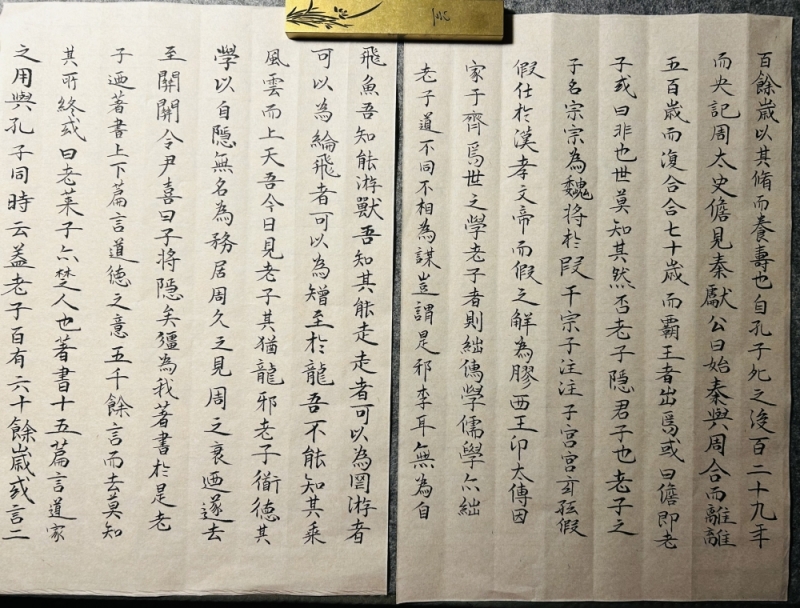 飛魚吾知能游獸吾知其能走走者可以為罔游者
可以為綸飛者可以為矰至於龍吾不能知其乘
風雲而上天吾今日見老子其猶龍邪老子衜德其
學以自隱無名為務居周久之見周之衰迺遂去
至關關令尹喜曰子將隱矣彊為我著書於是老
子迺著書上下篇言道德之意五千餘言而去莫知
其所終或曰老萊子亦楚人也著書十五篇言道家
之用與孔子同時云蓋老子百有六十餘歲或言二
百餘歲以其脩而養壽也自孔子死之後百二十九年
而史記周太史儋見秦獻公曰始秦與周合而離離
五百歲而復合合七十歲而霸王者出焉或曰儋即老
子或曰非也世莫知其然否老子隱君子也老子之
子名宗宗為魏將於段干宗子注注子宮宮玄孫假
假仕於漢孝文帝而假之解為膠西王卬太傅因
家于齊焉世之學老子者則絀儒學儒學亦絀
老子道不同不相為謀豈謂是邪李耳無為自